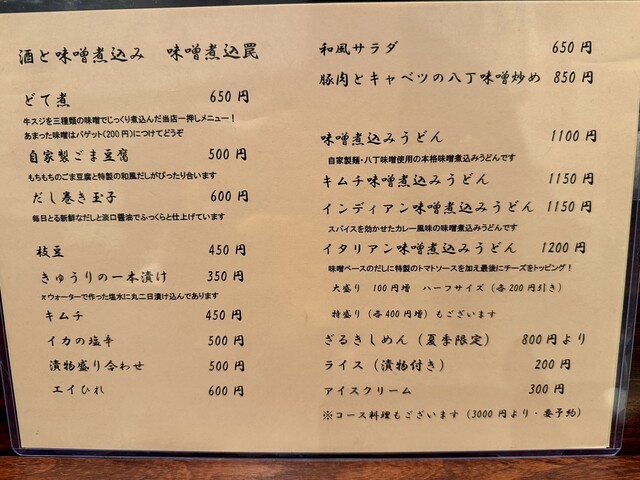 酒と味噌煮込み 味噌煮込罠
どて煮 650円
牛スジを三種類の味噌でじっくり煮込んだ当店一押しメニュー！
あまった味噌はバゲット(200円)につけてどうぞ
自家製ごま豆腐 500円
もちもちのごま豆腐と特製の和風だしがぴったり合います
だし巻き玉子 600円
毎日とる新鮮なだしと淡口醤油でふっくらと仕上げています
枝豆 450円
きゅうりの一本漬け 350円
πウォーターで作った塩水に丸二日漬け込んであります
キムチ 450円
イカの塩辛 500円
漬物盛り合わせ 500円
エイひれ 600円
和風サラダ 650円
豚肉とキャベツの八丁味噌炒め 850円
味噌煮込みうどん 1100円
自家製麺・八丁味噌使用の本格味噌煮込みうどんです
キムチ味噌煮込みうどん 1150円
インディアン味噌煮込みうどん 1150円
スパイスを効かせたカレー風味の味噌煮込みうどんです
イタリアン味噌煮込みうどん 1200円
味噌ベースのだしに特製のトマトソースを加え最後にチーズをトッピング！
大盛り 100円増 ハーフサイズ (各200円引き)
特盛り (各400円増) もございます
ざるきしめん (夏季限定) 800円より
ライス (漬物付き) 200円
アイスクリーム 300円
※コース料理もございます (3000円より・要予約)